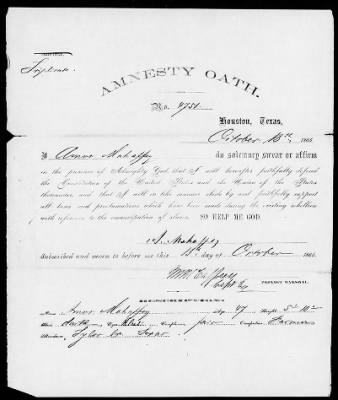 Triplicate.
AMNESTY OATH.
No. 4751
Houston, Texas,
October 18th, 1865
I, Amos Mahaffey do solemnly swear or affirm
in the presence of Almighty God, that I will hereafter faithfully defend
the Constitution of the United States and the Union of the States
thereunder, and that I will in like manner abide by and faithfully support
all laws and proclamations which have been made during the existing rebellion
with reference to the emancipation of slaves. SO HELP ME GOD.
A. Mahaffey
Subscribed and sworn to before me this 18th day of October 1865.
PROVOST MARSHAL.
DESCRIPTION.
Name Amos Mahaffey Age 47 Height 5" 10"
Hair Eyes Complexion fair Occupation Farmer
Residence Tyler Co Texas